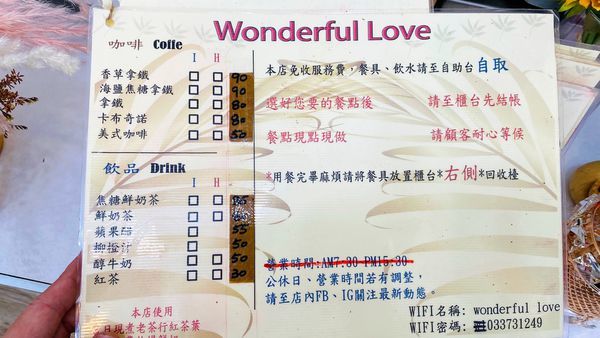 Wonderful Love
咖啡 Coffe
I H
香草拿鐵 90
海鹽焦糖拿鐵 90
拿鐵 80
卡布奇諾 80
美式咖啡 50
飲品 Drink
I H
焦糖鮮奶茶
鮮奶茶 60
蘋果醋 55
柳橙汁 50
醇牛奶 50
紅茶 30
本店使用
日現煮老茶行紅茶葉
本店免收服務費，餐具、飲水請至自助台自取
選好您要的餐點後 請至櫃台先結帳
餐點現點現做 請顧客耐心等候
*用餐完畢麻煩請將餐具放置櫃台*右側*回收檯
營業時間:AM7:30-PM15:30
公休日、營業時間若有調整，
請至店內FB、IG關注最新動態。
WIFI名稱: wonderful love
WIFI密碼: 033731249